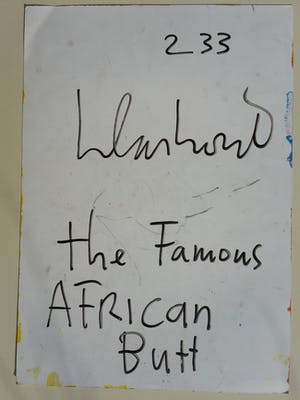 233
the Famous
AFRICAN
Butt